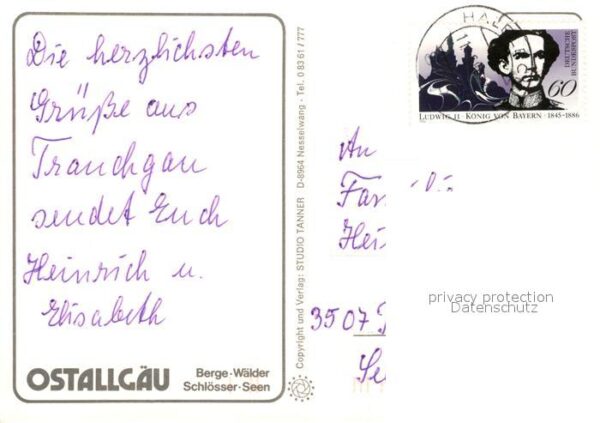 Die herzlichsten
Grüße aus
Trauchgau
sendet Euch
Heinrich u.
Elisabeth
OSTALLGÄU
Berge-Wälder
Schlösser-Seen
Copyright und Verlag: STUDIO TANNER D-8964 Nesselwang · Tel. 0 83 61 / 777
DEUTSCHE
BUNDESPOST
60
LUDWIG II · KÖNIG VON BAYERN · 1845-1886
An
Fam
Hei
3507
privacy protection
Datenschutz